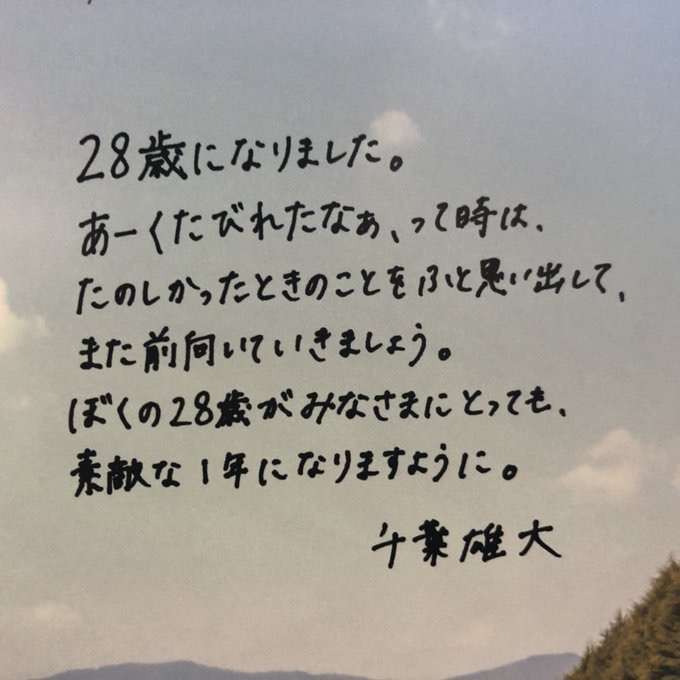 28歳になりました。
あーくたびれたなぁ、って時は、
たのしかったときのことをふと思い出して、
また前向いていきましょう。
ぼくの28歳がみなさまにとっても、
素敵な1年になりますように。
千葉雄大